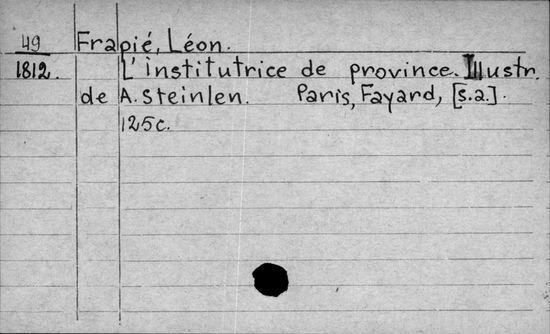 49 Frapié, Léon.
1812. L'institutrice de province. Illustr.
de A. Steinlen. Paris, Fayard, [s.a.].
125c.